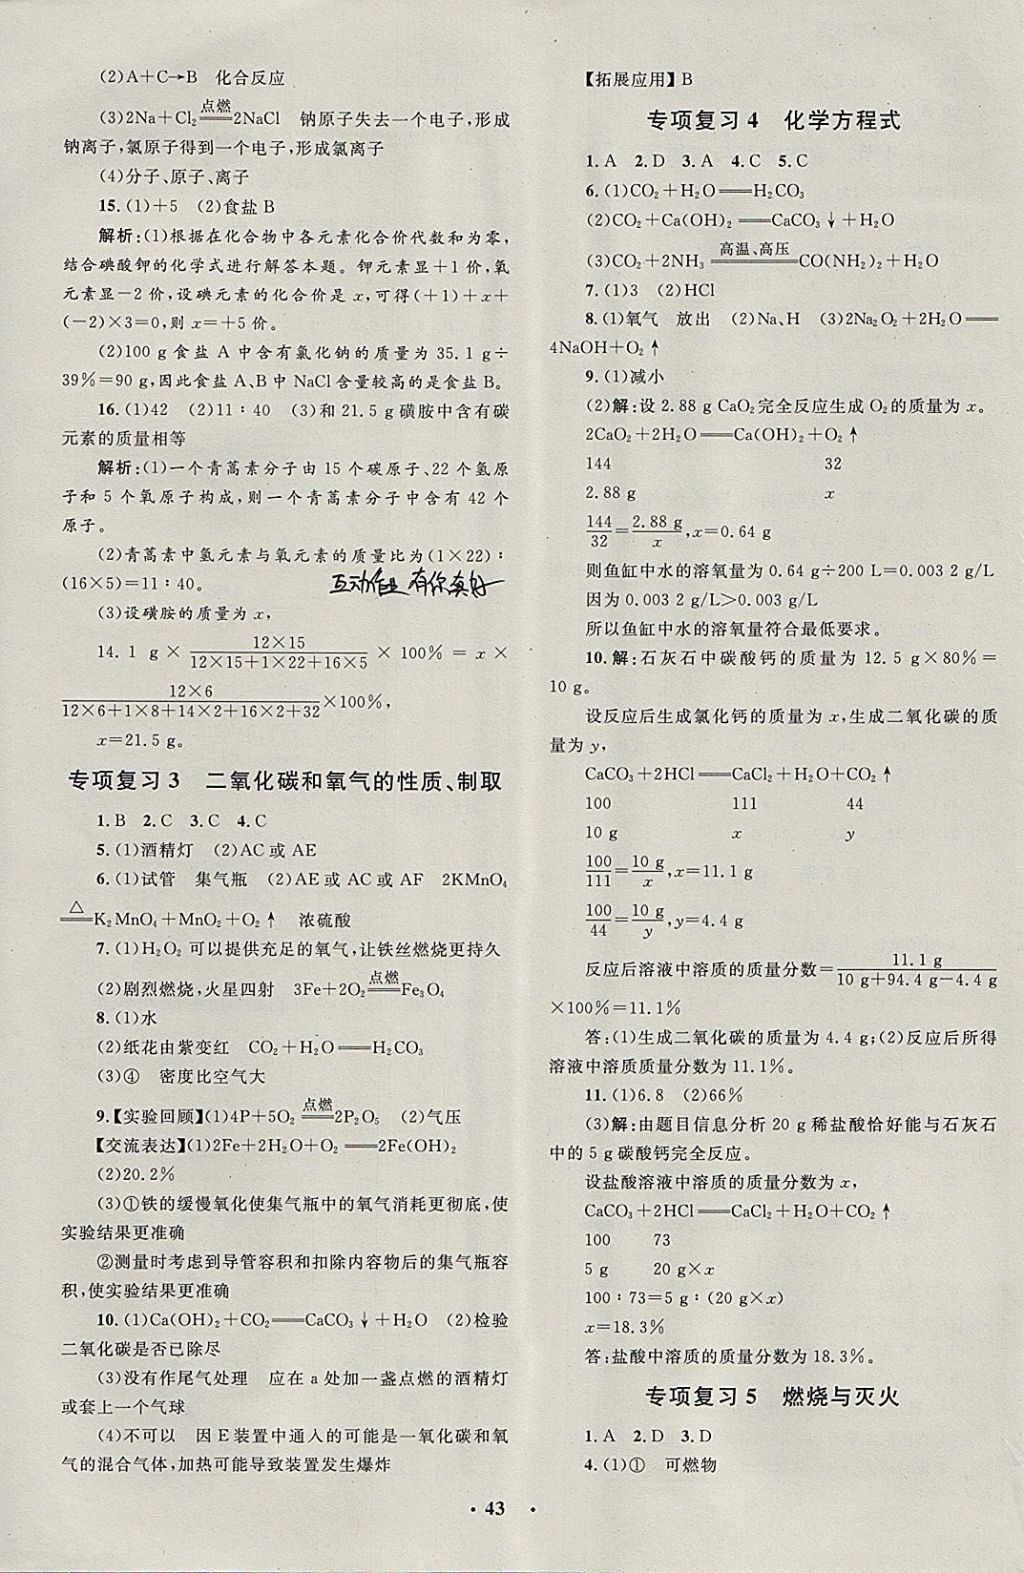 (2)A+C→B　化合反应
(3)2Na+Cl₂ 点燃══ 2NaCl　钠原子失去一个电子,形成
钠离子,氯原子得到一个电子,形成氯离子
(4)分子、原子、离子
15.(1)+5　(2)食盐 B
解析:(1)根据在化合物中各元素化合价代数和为零,
结合碘酸钾的化学式进行解答本题。钾元素显+1 价,氧
元素显-2 价,设碘元素的化合价是 x,可得(+1)+x+
(-2)×3=0,则 x=+5 价。
(2)100 g 食盐 A 中含有氯化钠的质量为 35.1 g÷
39%=90 g,因此食盐A、B中 NaCl 含量较高的是食盐B。
16.(1)42　(2)11∶40　(3)和 21.5 g 磺胺中含有碳
元素的质量相等
解析:(1)一个青蒿素分子由 15 个碳原子、22 个氢原
子和 5 个氧原子构成,则一个青蒿素分子中含有 42 个
原子。
(2)青蒿素中氢元素与氧元素的质量比为(1×22)∶
(16×5)=11∶40。
互动作业 有你真好
(3)设磺胺的质量为 x,
14.1 g × 12×15/(12×15+1×22+16×5) × 100% = x ×
12×6/(12×6+1×8+14×2+16×2+32) ×100%,
x=21.5 g。
专项复习 3　二氧化碳和氧气的性质、制取
1.B　2.C　3.C　4.C
5.(1)酒精灯　(2)AC 或 AE
6.(1)试管　集气瓶　(2)AE或 AC或 AF　2KMnO₄
△══ K₂MnO₄+MnO₂+O₂↑　浓硫酸
7.(1)H₂O₂ 可以提供充足的氧气,让铁丝燃烧更持久
(2)剧烈燃烧,火星四射　3Fe+2O₂ 点燃══ Fe₃O₄
8.(1)水
(2)纸花由紫变红　CO₂+H₂O══H₂CO₃
(3)④　密度比空气大
9.【实验回顾】(1)4P+5O₂ 点燃══ 2P₂O₅　(2)气压
【交流表达】(1)2Fe+2H₂O+O₂══2Fe(OH)₂
(2)20.2%
(3)①铁的缓慢氧化使集气瓶中的氧气消耗更彻底,使
实验结果更准确
②测量时考虑到导管容积和扣除内容物后的集气瓶容
积,使实验结果更准确
10.(1)Ca(OH)₂+CO₂══CaCO₃↓+H₂O　(2)检验
二氧化碳是否已除尽
(3)没有作尾气处理　应在 a 处加一盏点燃的酒精灯
或套上一个气球
(4)不可以　因 E装置中通入的可能是一氧化碳和氧
气的混合气体,加热可能导致装置发生爆炸
【拓展应用】B
专项复习 4　化学方程式
1.A　2.D　3.A　4.C　5.C
6.(1)CO₂+H₂O══H₂CO₃
(2)CO₂+Ca(OH)₂══CaCO₃↓+H₂O
(3)CO₂+2NH₃ 高温、高压══ CO(NH₂)₂+H₂O
7.(1)3　(2)HCl
8.(1)氧气　放出　(2)Na、H　(3)2Na₂O₂+2H₂O══
4NaOH+O₂↑
9.(1)减小
(2)解:设 2.88 g CaO₂完全反应生成 O₂的质量为 x。
2CaO₂+2H₂O══Ca(OH)₂+O₂↑
144　32
2.88 g　x
144/32=2.88 g/x,x=0.64 g
则鱼缸中水的溶氧量为 0.64 g÷200 L=0.003 2 g/L
因为 0.003 2 g/L>0.003 g/L
所以鱼缸中水的溶氧量符合最低要求。
10.解:石灰石中碳酸钙的质量为 12.5 g×80%=
10 g。
设反应后生成氯化钙的质量为 x,生成二氧化碳的质
量为 y,
CaCO₃+2HCl══CaCl₂+H₂O+CO₂↑
100　111　44
10 g　x　y
100/111=10 g/x,x=11.1 g
100/44=10 g/y,y=4.4 g
反应后溶液中溶质的质量分数=11.1 g/(10 g+94.4 g-4.4 g)
×100%=11.1%
答:(1)生成二氧化碳的质量为 4.4 g;(2)反应后所得
溶液中溶质质量分数为 11.1%。
11.(1)6.8　(2)66%
(3)解:由题目信息分析 20 g 稀盐酸恰好能与石灰石
中的 5 g碳酸钙完全反应。
设盐酸溶液中溶质的质量分数为 x,
CaCO₃+2HCl══CaCl₂+H₂O+CO₂↑
100　73
5 g　20 g×x
100∶73=5 g∶(20 g×x)
x=18.3%
答:盐酸中溶质的质量分数为 18.3%。
专项复习 5　燃烧与灭火
1.A　2.D　3.D
4.(1)①　可燃物
• 43 •